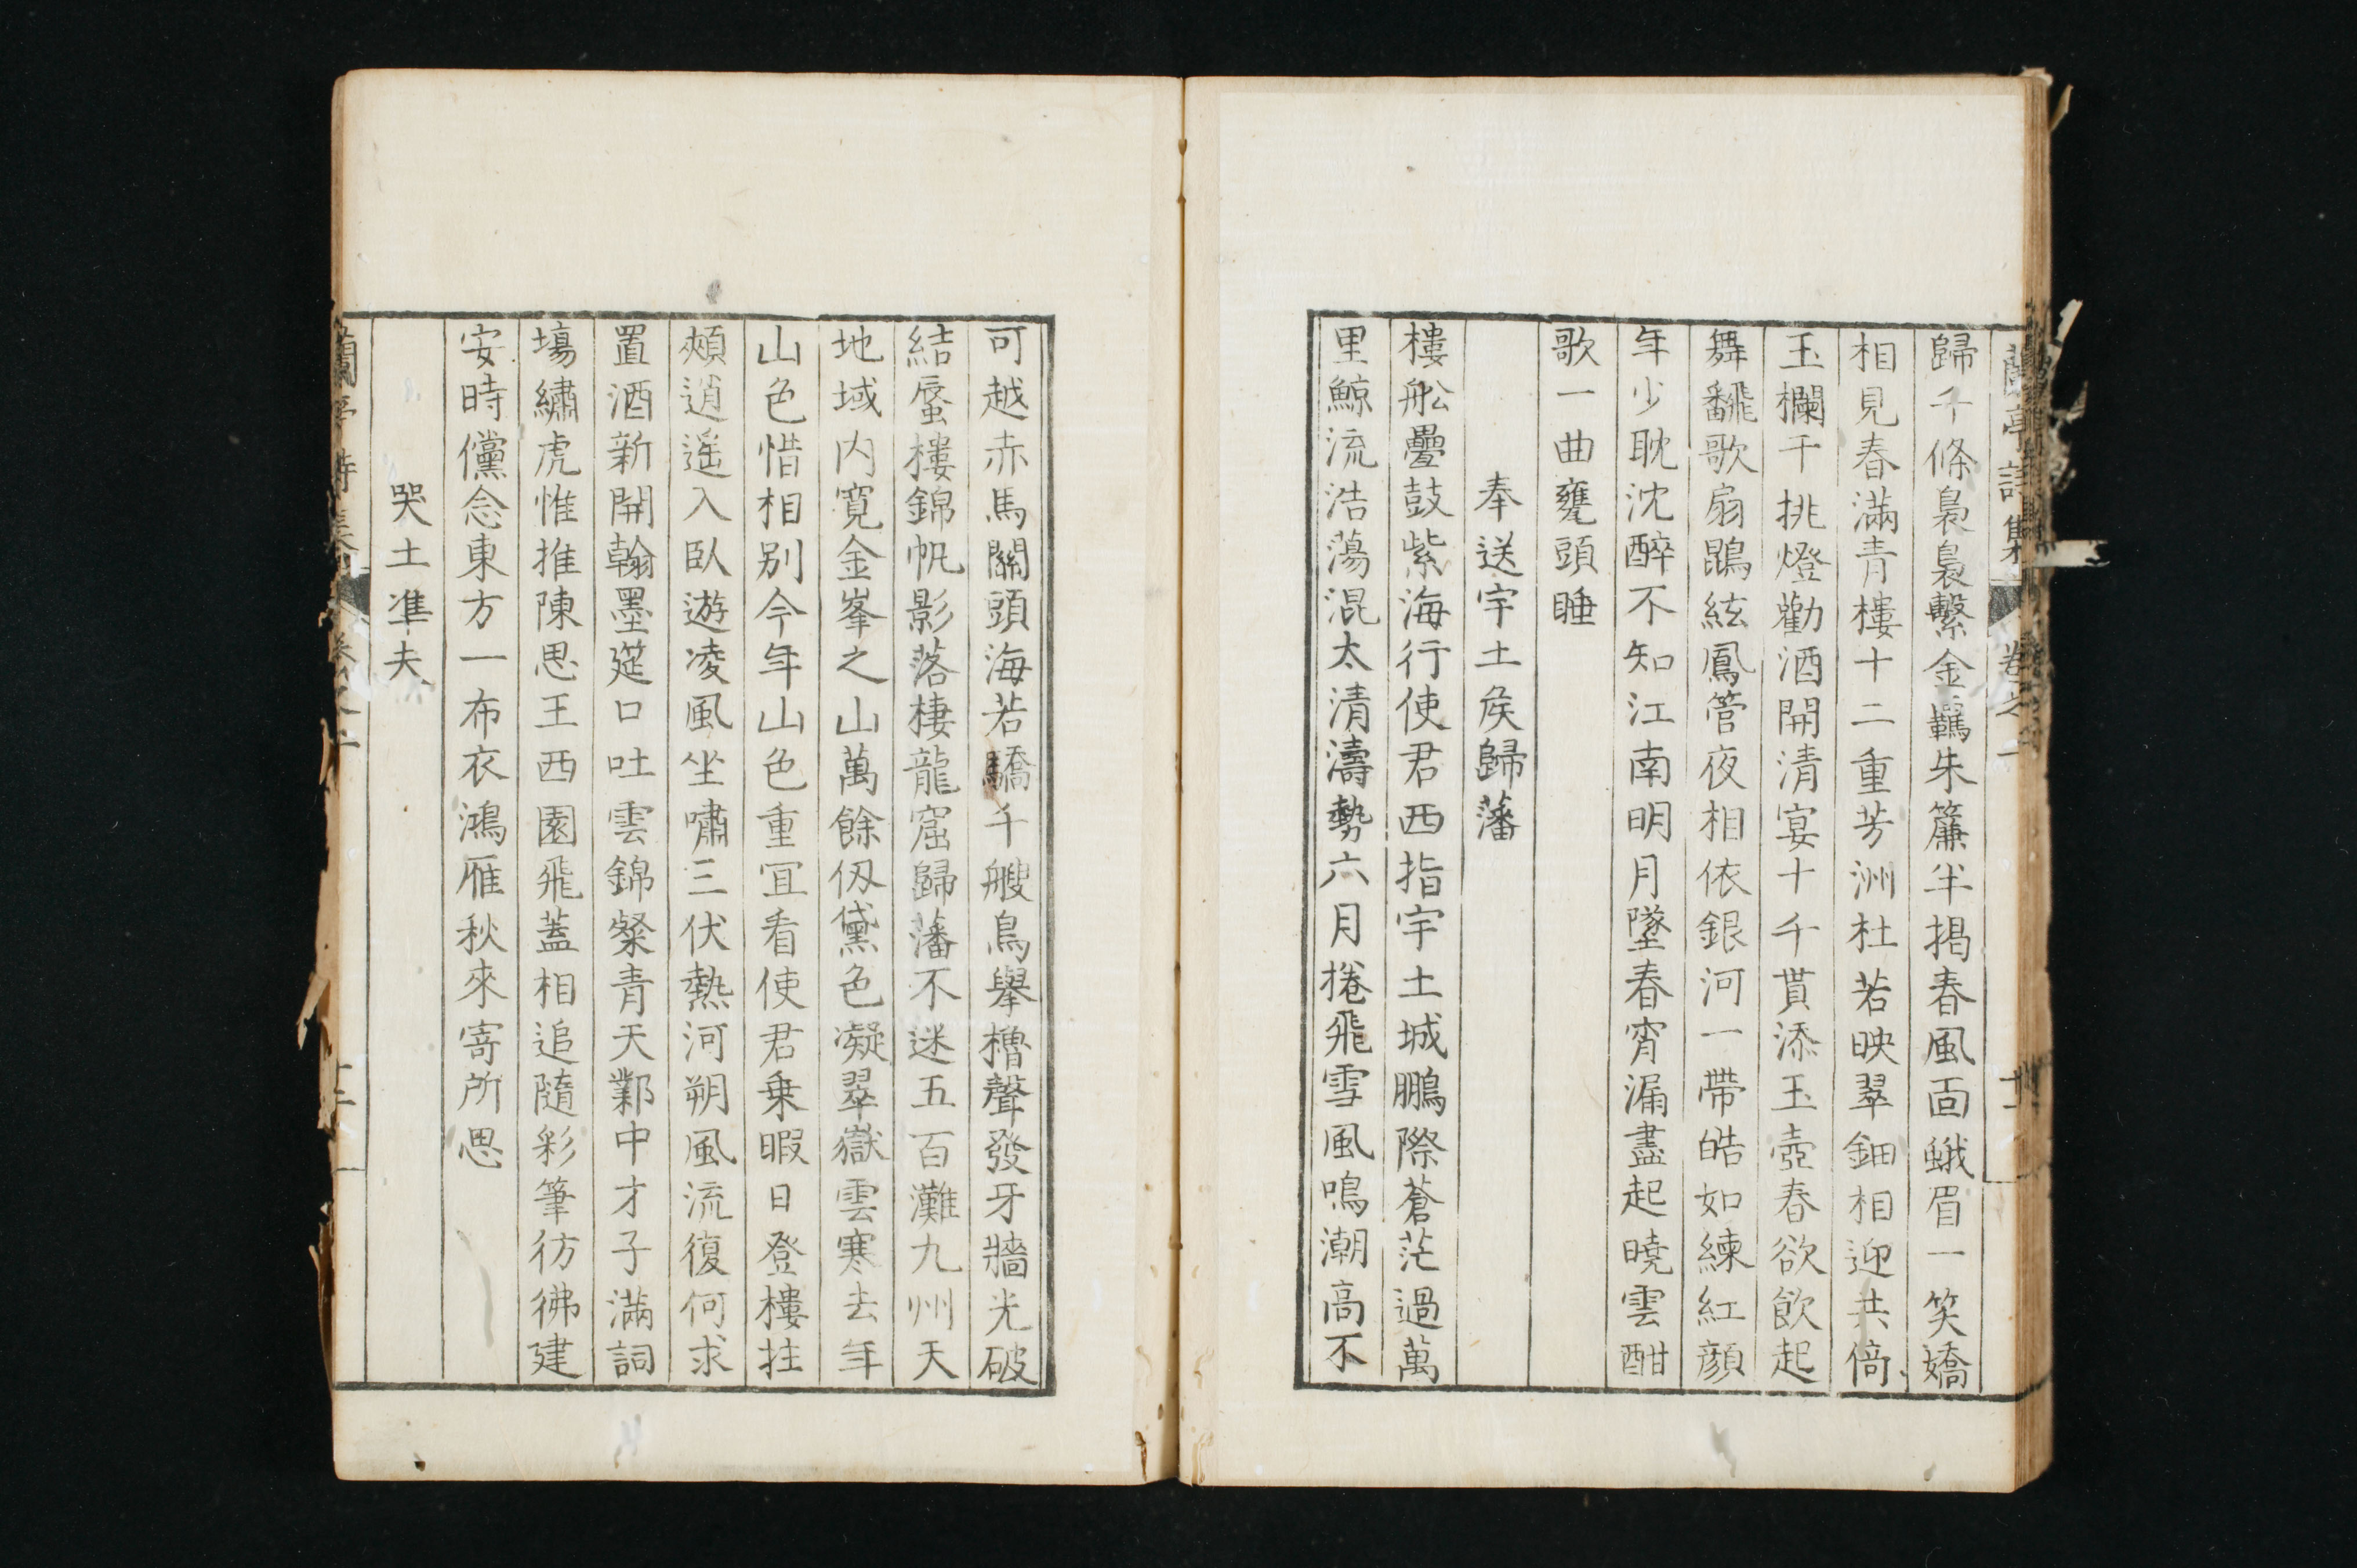 蘭亭詩集 卷之一
歸千條裊裊繫金羈朱簾半掲春風面蛾眉一笑嬌
相見春滿青樓十二重芳洲杜若映翠鈿相迎共倚
玉欄干挑燈勸酒開清宴十千貰添玉壺春欲飲起
舞飜歌扇鵾絃鳳管夜相依銀河一帶皓如練紅顔
年少耽沈醉不知江南明月墜春宵漏盡起曉雲酣
歌一曲甕頭睡
奉送宇土侯歸藩
樓舩疊鼓紫海行使君西指宇土城鵬際蒼茫過萬
里鯨流浩蕩混太清濤勢六月捲飛雪風鳴潮高不
可越赤馬關頭海若驕千艘鳥擧櫓聲發牙牆光破
結蜃樓錦帆影落棲龍窟歸藩不迷五百灘九州天
地域内寛金峯之山萬餘仭黛色凝翠嶽雲寒去年
山色惜相別今年山色重宜看使君乗暇日登樓拄
頰逍遥入臥遊凌風坐嘯三伏熱河朔風流復何求
置酒新開翰墨筵口吐雲錦粲青天鄴中才子滿詞
場繡虎惟推陳思王西園飛蓋相追隨彩筆彷彿建
安時儻念東方一布衣鴻雁秋來寄所思
哭土準夫
蘭亭詩集 卷之一